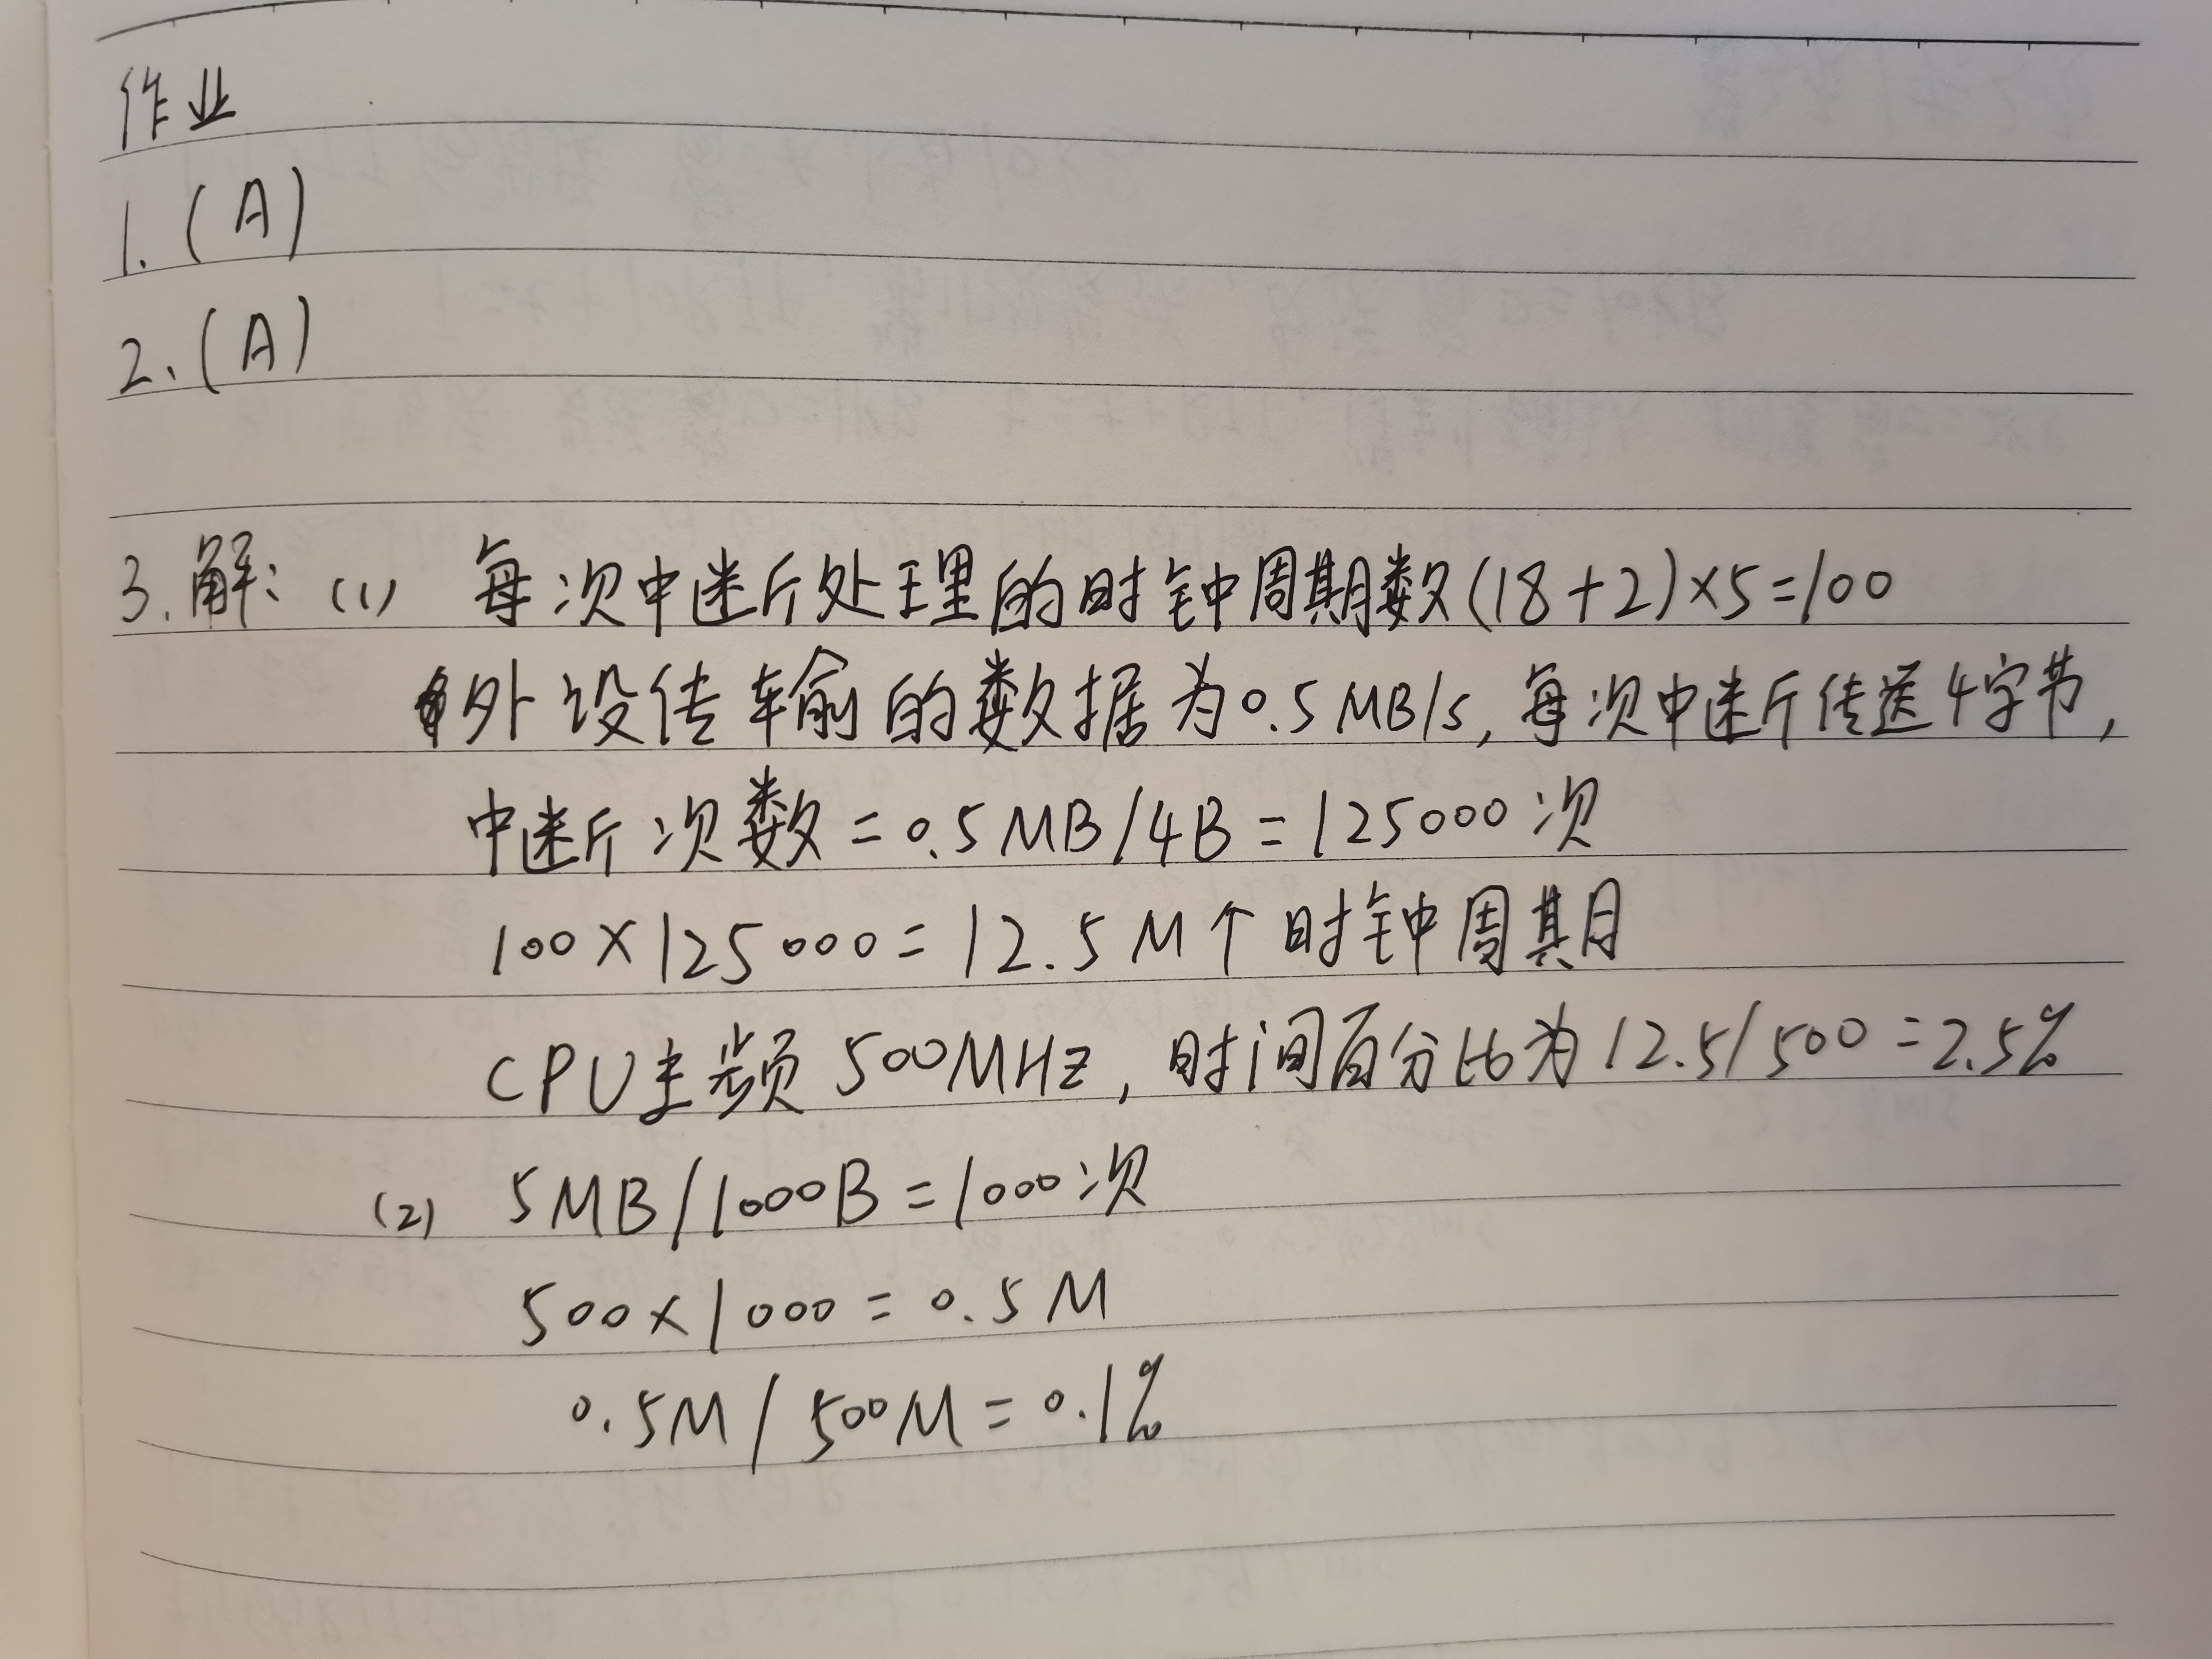 作业
1.(A)
2.(A)
3.解:(1) 每次中断处理的时钟周期数(18+2)×5=100
外设传输的数据为0.5MB/s,每次中断传送4字节,
中断次数=0.5MB/4B=125000次
100×125000=12.5M个时钟周期
CPU主频500MHz,时间百分比为12.5/500=2.5%
(2) 5MB/1000B=1000次
500×1000=0.5M
0.5M/500M=0.1%